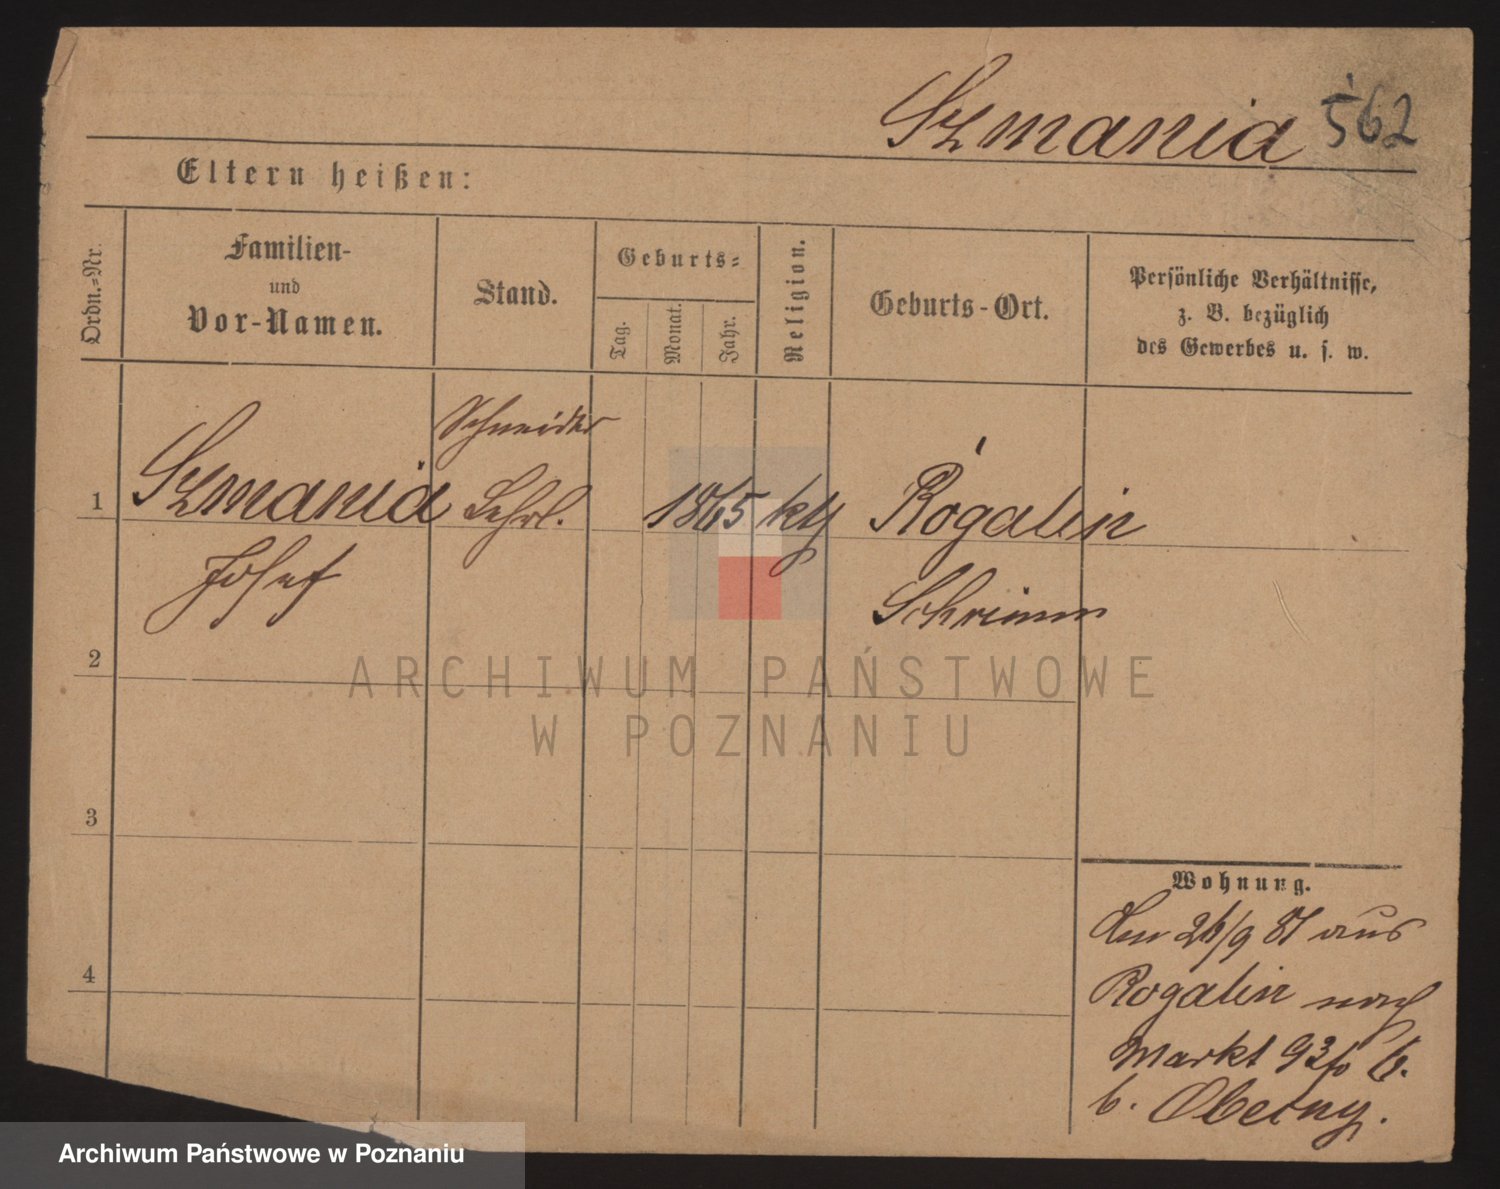 Szmania 562
Eltern heißen:
Ordn.-Nr.
Familien-
und
Vor-Namen.
Stand.
Geburts-
Tag.
Monat.
Jahr.
Religion.
Geburts-Ort.
Persönliche Verhältnisse,
z. B. bezüglich
des Gewerbes u. s. w.
Schneider
1 Szmania Lehrl. 1865 kth Rogalin
Josef
Schrimm
2
3
4
Wohnung.
Den 26/9 81 aus
Rogalin nach
Markt 93
b. Obecny.
ARCHIWUM PAŃSTWOWE
W POZNANIU
Archiwum Państwowe w Poznaniu